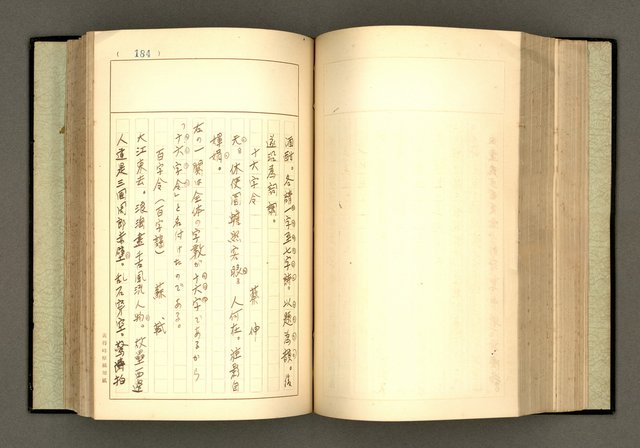 ( 184 )
酒酣。各請一字至七字詩。以題為韻。後
遂沿為詞調。
十六字令 蔡伸
天。休使圓蟾照客眠。人何在。桂影自
嬋娟。
左の一闋は全体の字数が十六字であるから
「十六字令」と名付けたのである。
百字令（百字謠） 蘇軾
大江東去。浪淘盡千古風流人物。故壘西邊
人道是三國周郎赤壁。乱石穿空。驚濤拍
黃得時原稿用紙